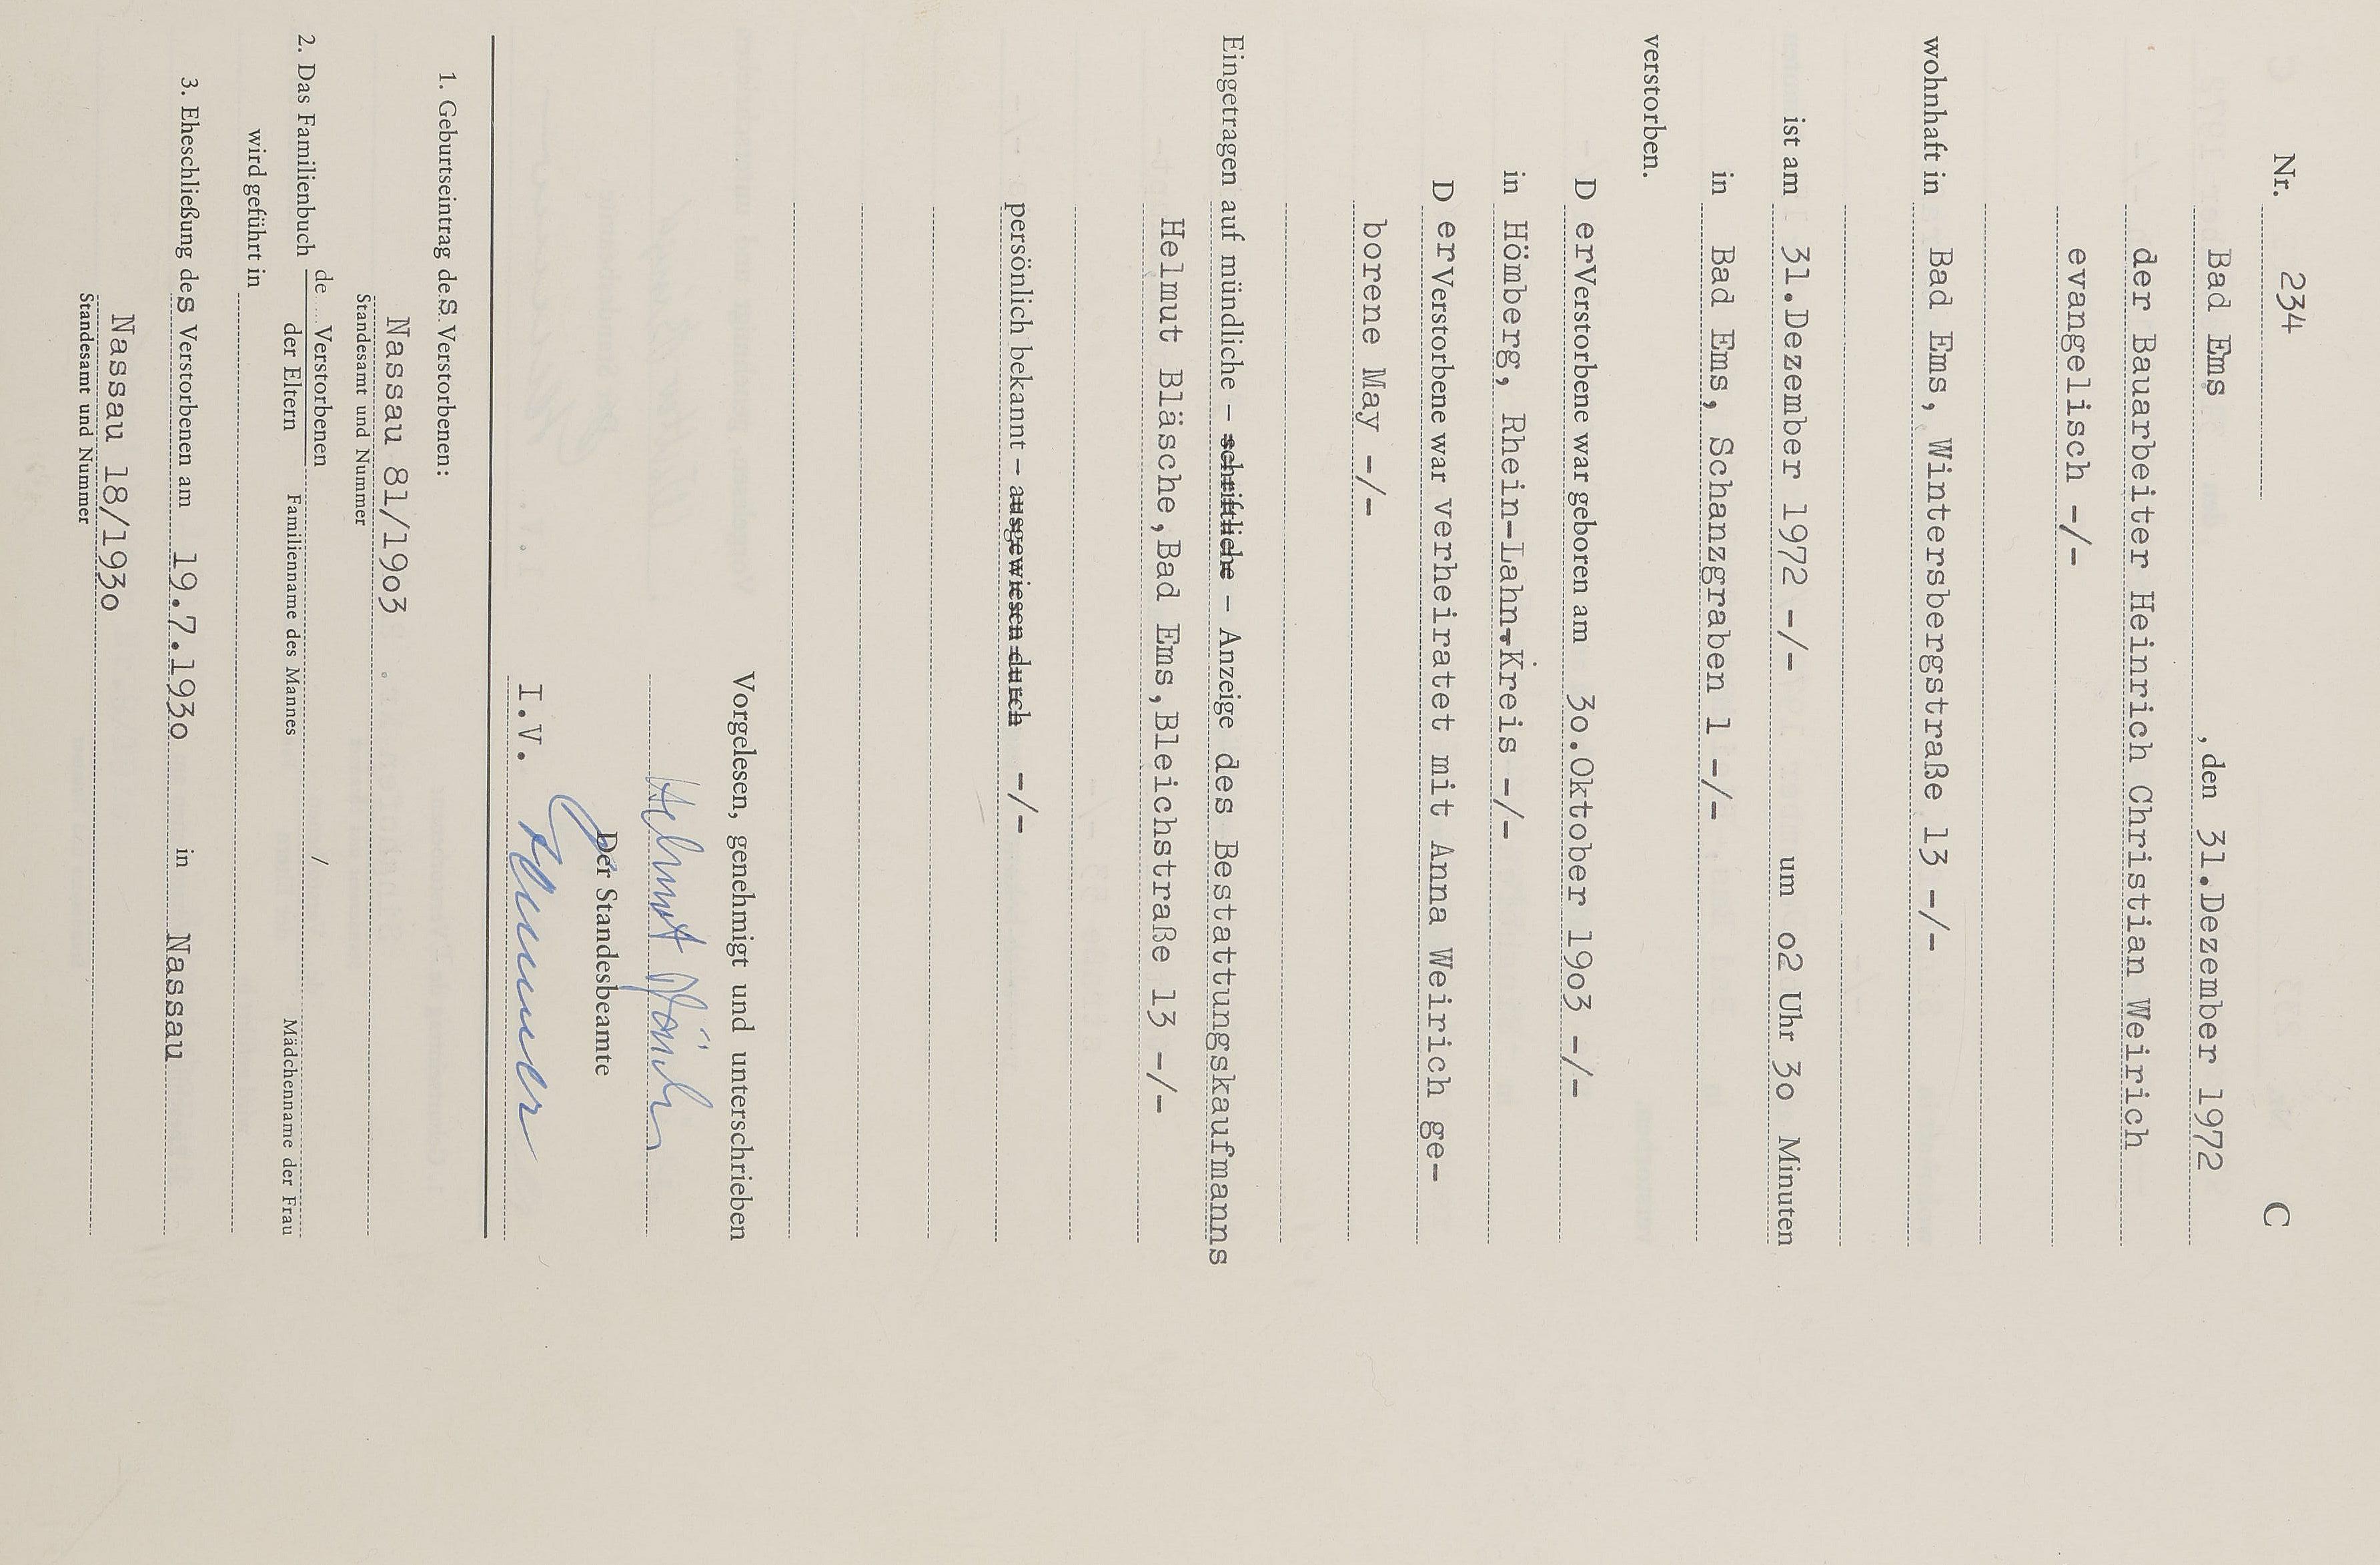 Nr. 234 C
Bad Ems , den 31.Dezember 1972
der Bauarbeiter Heinrich Christian Weirich
evangelisch -/-
wohnhaft in Bad Ems, Wintersbergstraße 13 -/-
ist am 31.Dezember 1972 -/- um o2 Uhr 3o Minuten
in Bad Ems, Schanzgraben 1 -/-
verstorben.
D erVerstorbene war geboren am 3o.Oktober 19o3 -/-
in Hömberg, Rhein-Lahn-Kreis -/-
D erVerstorbene war verheiratet mit Anna Weirich ge-
borene May -/-
Eingetragen auf mündliche – schriftliche – Anzeige des Bestattungskaufmanns
Helmut Bläsche,Bad Ems,Bleichstraße 13 -/-
persönlich bekannt – ausgewiesen durch -/-
Vorgelesen, genehmigt und unterschrieben
Helmut
Der Standesbeamte
I.V.
1. Geburtseintrag des Verstorbenen:
Nassau 81/19o3
Standesamt und Nummer
2. Das Familienbuch de Verstorbenen /
der Eltern Familienname des Mannes Mädchenname der Frau
wird geführt in
3. Eheschließung des Verstorbenen am 19.7.193o in Nassau
Nassau 18/193o
Standesamt und Nummer